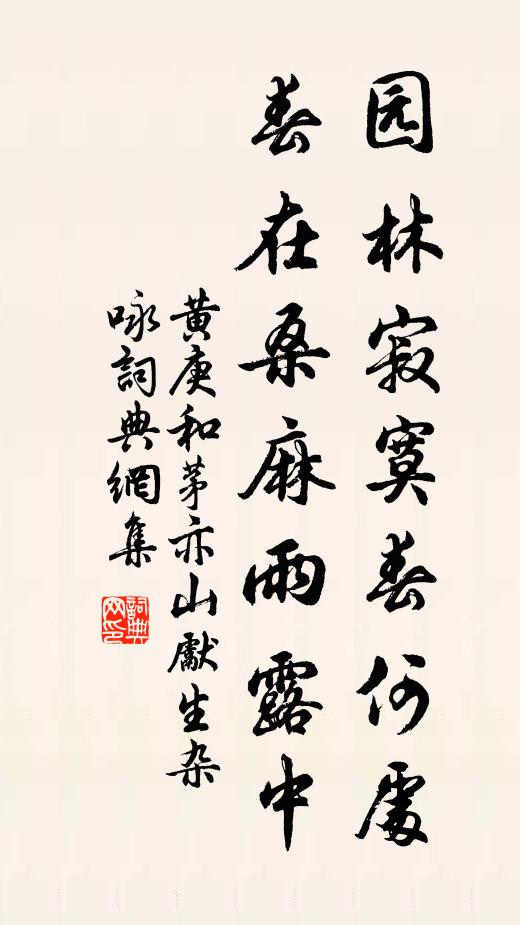 园林寂寞春何處
春在桑麻雨露中
黄庚和茅亦山獻生杂
咏詞典網集
詞典
网印